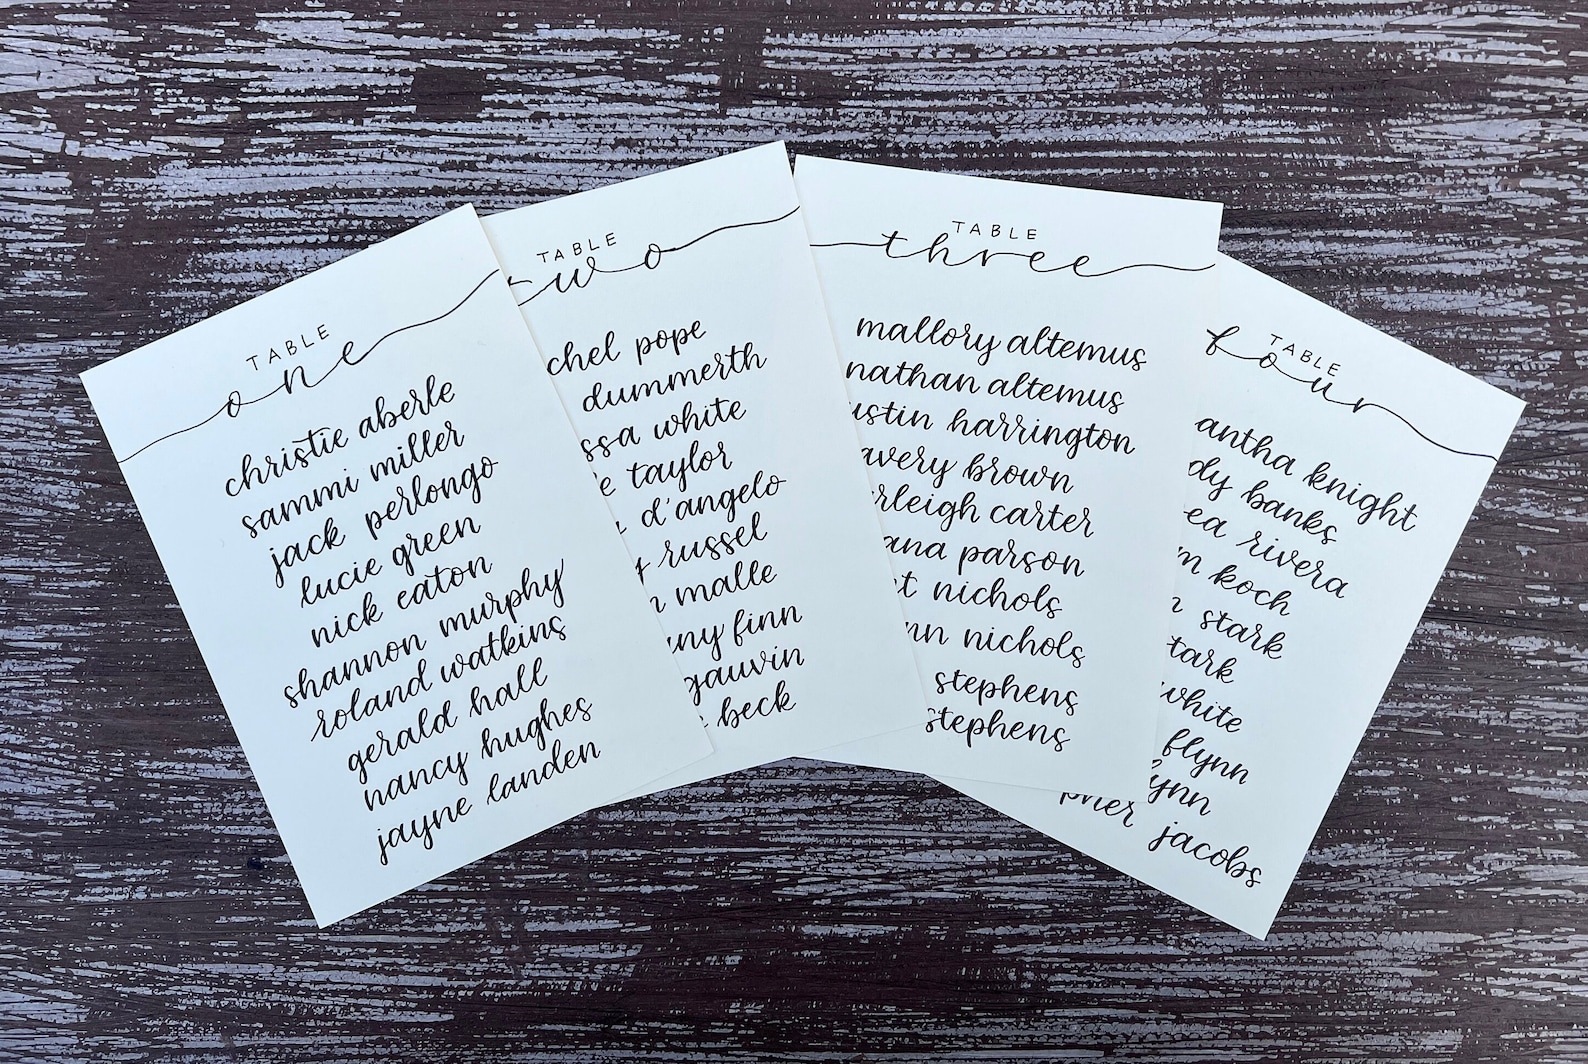 TABLE
one
christie aberle
sammi miller
jack perlongo
lucie green
nick eaton
shannon murphy
roland watkins
gerald hall
nancy hughes
jayne landen
TABLE
two
chel pope
dummerth
ssa white
e taylor
d'angelo
russel
malle
ny finn
gauvin
beck
TABLE
three
mallory altemus
nathan altemus
ustin harrington
avery brown
rleigh carter
ana parson
t nichols
nn nichols
stephens
stephens
TABLE
four
antha knight
dy banks
ea rivera
m koch
stark
tark
white
flynn
lynn
pher jacobs